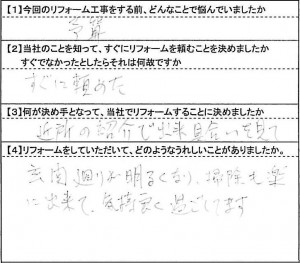 【1】今回のリフォーム工事をする前、どんなことで悩んでいましたか
予算
【2】当社のことを知って、すぐにリフォームを頼むことを決めましたか
すぐでなかったとしたらそれは何故ですか
すぐに頼めた
【3】何が決め手となって、当社でリフォームすることに決めましたか
近所の紹介で出来具合いを見て
【4】リフォームをしていただいて、どのようなうれしいことがありましたか。
玄関廻りが明るくなり、掃除も楽
に出来て、気持良く過ごしてます